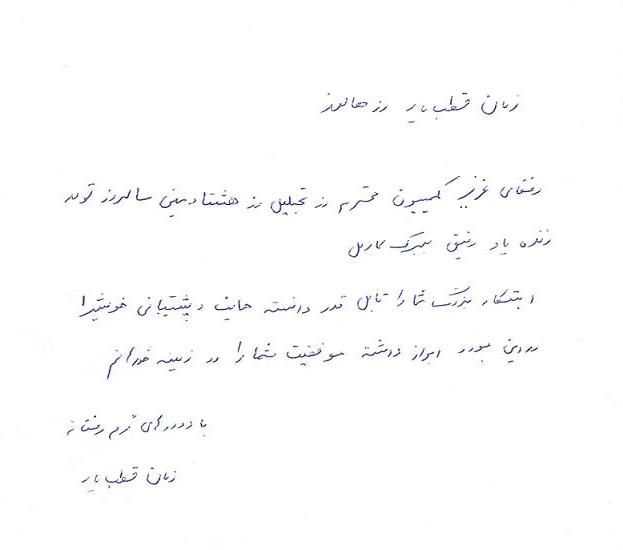 زمان قطب یار از هالند
رفقای عزیز کمیسیون محترم از تجلیل از هشتادمین سالروز تولد
زنده یاد رفیق ببرک کارمل
ابتکار بزرگ شما را قابل قدر دانسته حمایت و پشتیبانی خویشرا
در این مورد ابراز داشته موفقیت شما را در زمینه خواهانم
با درودهای گرم رفیقانه
زمان قطب یار